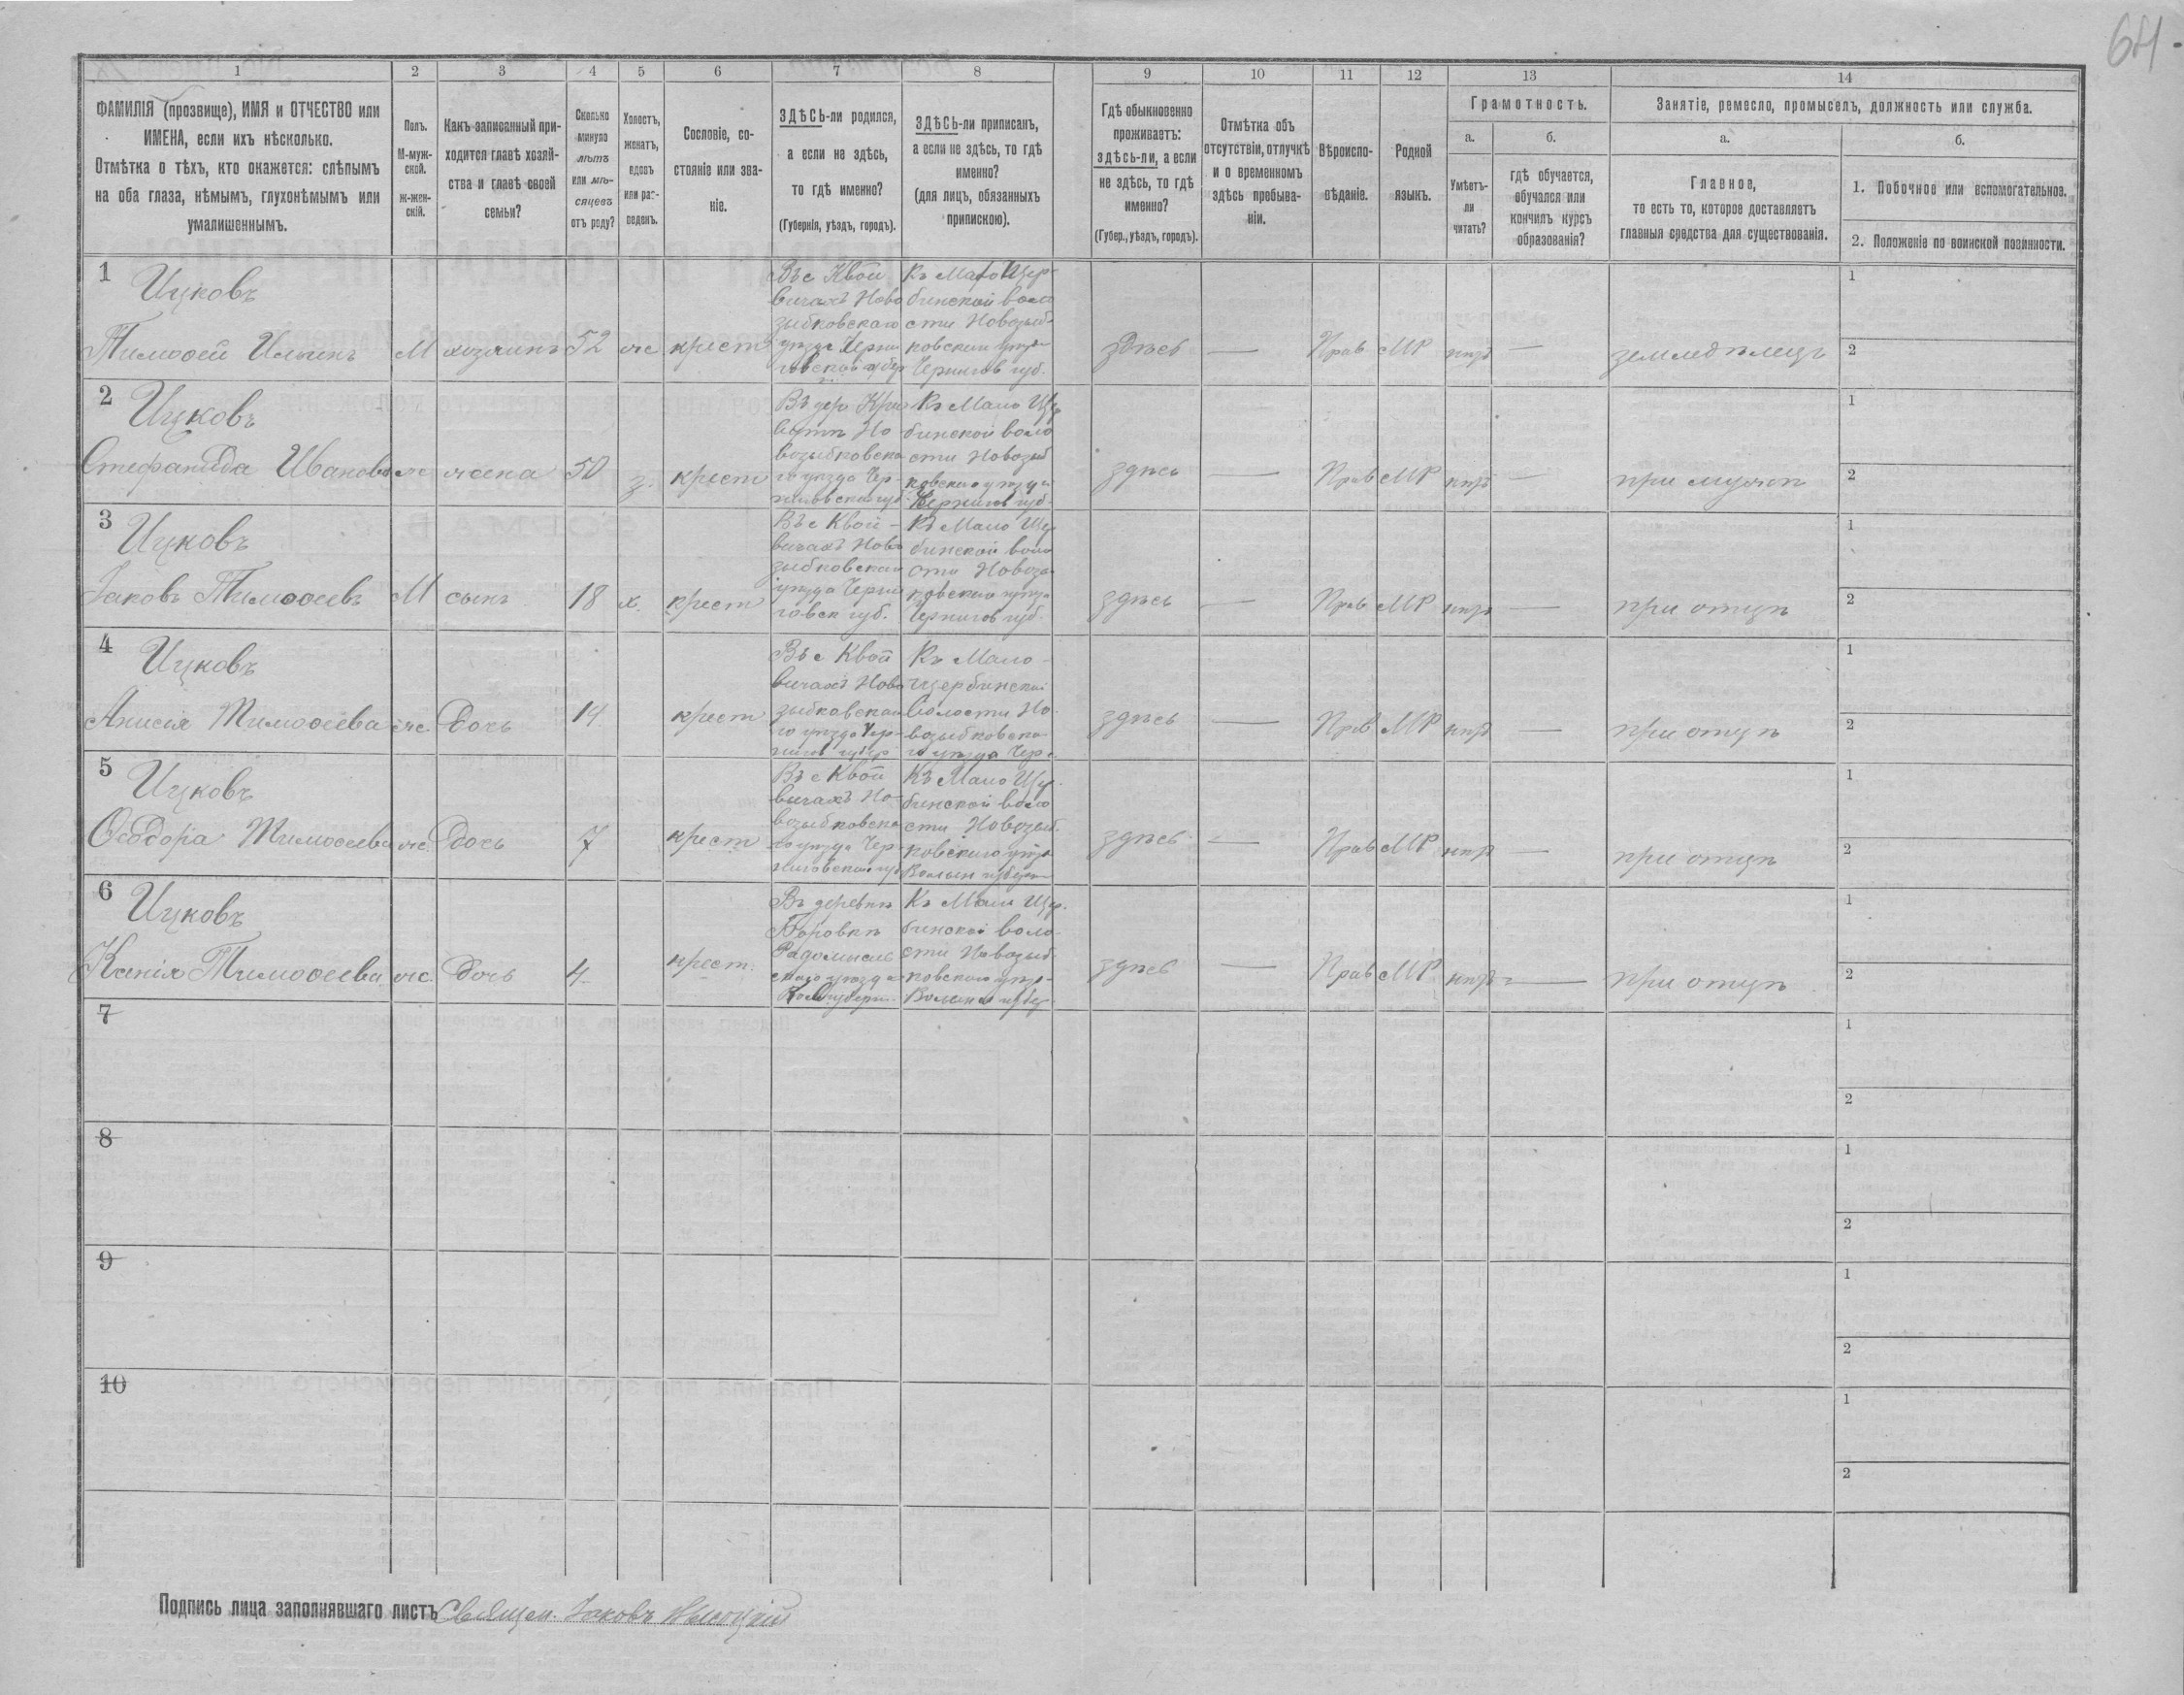 64.
1 2 3 4 5 6 7 8 9 10 11 12 13 14
ФАМИЛІЯ (прозвище), ИМЯ и ОТЧЕСТВО или
ИМЕНА, если ихъ нѣсколько.
Отмѣтка о тѣхъ, кто окажется: слѣпымъ
на оба глаза, нѣмымъ, глухонѣмымъ или
умалишеннымъ.
Полъ.
М-муж-
ской.
Ж-жен-
скій.
Какъ записанный при-
ходится главѣ хозяй-
ства и главѣ своей
семьи?
Сколько
минуло
лѣтъ
или мѣ-
сяцевъ
отъ роду?
Холостъ,
женатъ,
вдовъ
или раз-
веденъ.
Сословіе, со-
стояніе или зва-
ніе.
ЗДѢСЬ-ли родился,
а если не здѣсь,
то гдѣ именно?
(Губернія, уѣздъ, городъ).
ЗДѢСЬ-ли приписанъ,
а если не здѣсь, то гдѣ
именно?
(для лицъ, обязанныхъ
припискою).
Гдѣ обыкновенно
проживаетъ:
здѣсь-ли, а если
не здѣсь, то гдѣ
именно?
(Губер., уѣздъ, городъ).
Отмѣтка объ
отсутствіи, отлучкѣ
и о временномъ
здѣсь пребыва-
ніи.
Вѣроиспо-
вѣданіе.
Родной
языкъ.
Грамотность.
а.
Умѣетъ-
ли
читать?
б.
гдѣ обучается,
обучался или
кончилъ курсъ
образованія?
Занятіе, ремесло, промыселъ, должность или служба.
а.
Главное,
то есть то, которое доставляетъ
главныя средства для существованія.
б.
1. Побочное или вспомогательное.
2. Положеніе по воинской повинности.
1
Ицковъ
Тимоѳей Ильинъ М хозяинъ 52 ж крест
Въ с Квой
вичахъ Ново
зыбковскаго
уѣзда Черни
говской губер
Къ Мало Щер
бинской воло
сти Новозыб-
ковскаго уѣзда
Чернигов губ.
здѣсь — Прав МР нѣтъ — земледѣлецъ
1
2
2
Ицковъ
Стефанида Иванова ж жена 50 з. крест
Къ Мало Щер
бинской воло
сти Новозыб
ковскаго уѣзда
Чернигов губ.
здѣсь — Прав МР нѣтъ — при мужѣ
1
2
3
Ицковъ
Іаковъ Тимоѳеевъ М сынъ 18 х. крест
Въ с Квой-
вичахъ Ново
зыбковскаго
уѣзда Черни
говск губ.
Къ Мало Щер
бинской воло
сти Новозы
ковскаго уѣзда
Чернигов губ.
здѣсь — Прав МР нѣтъ — при отцѣ
1
2
4
Ицковъ
Анисія Тимоѳеева ж. дочь 14 крест
Въ с Квой
вичахъ Ново
зыбковскаго
уѣзда Чер-
нигов губер
Къ Мало-
Щербинской
волости Но-
возыбковска-
го уѣзда Чер.
здѣсь — Прав МР нѣтъ — при отцѣ
1
2
5
Ицковъ
Ѳеодора Тимоѳеева ж. дочь 7 крест
Въ с Квой
вичахъ Но-
возыбковска
го уѣзда Чер-
ниговской губ
Къ Мало Щер.
бинской воло
сти Новозыб.
ковскаго уѣзда
Волын губерн
здѣсь — Прав МР нѣтъ — при отцѣ
1
2
6
Ицковъ
Ксенія Тимоѳеева ж. дочь 4 крест.
Въ деревнѣ
Боровкѣ
Радомысль
скаго уѣзда
Къ Мало Щер.
бинской воло-
сти Новозыб.
ковскаго уѣз-
здѣсь — Прав МР нѣтъ — при отцѣ
1
2
7
1
2
8
1
2
9
1
2
10
1
2
Подпись лица заполнявшаго листъ Священ. Іаковъ Высоцкій